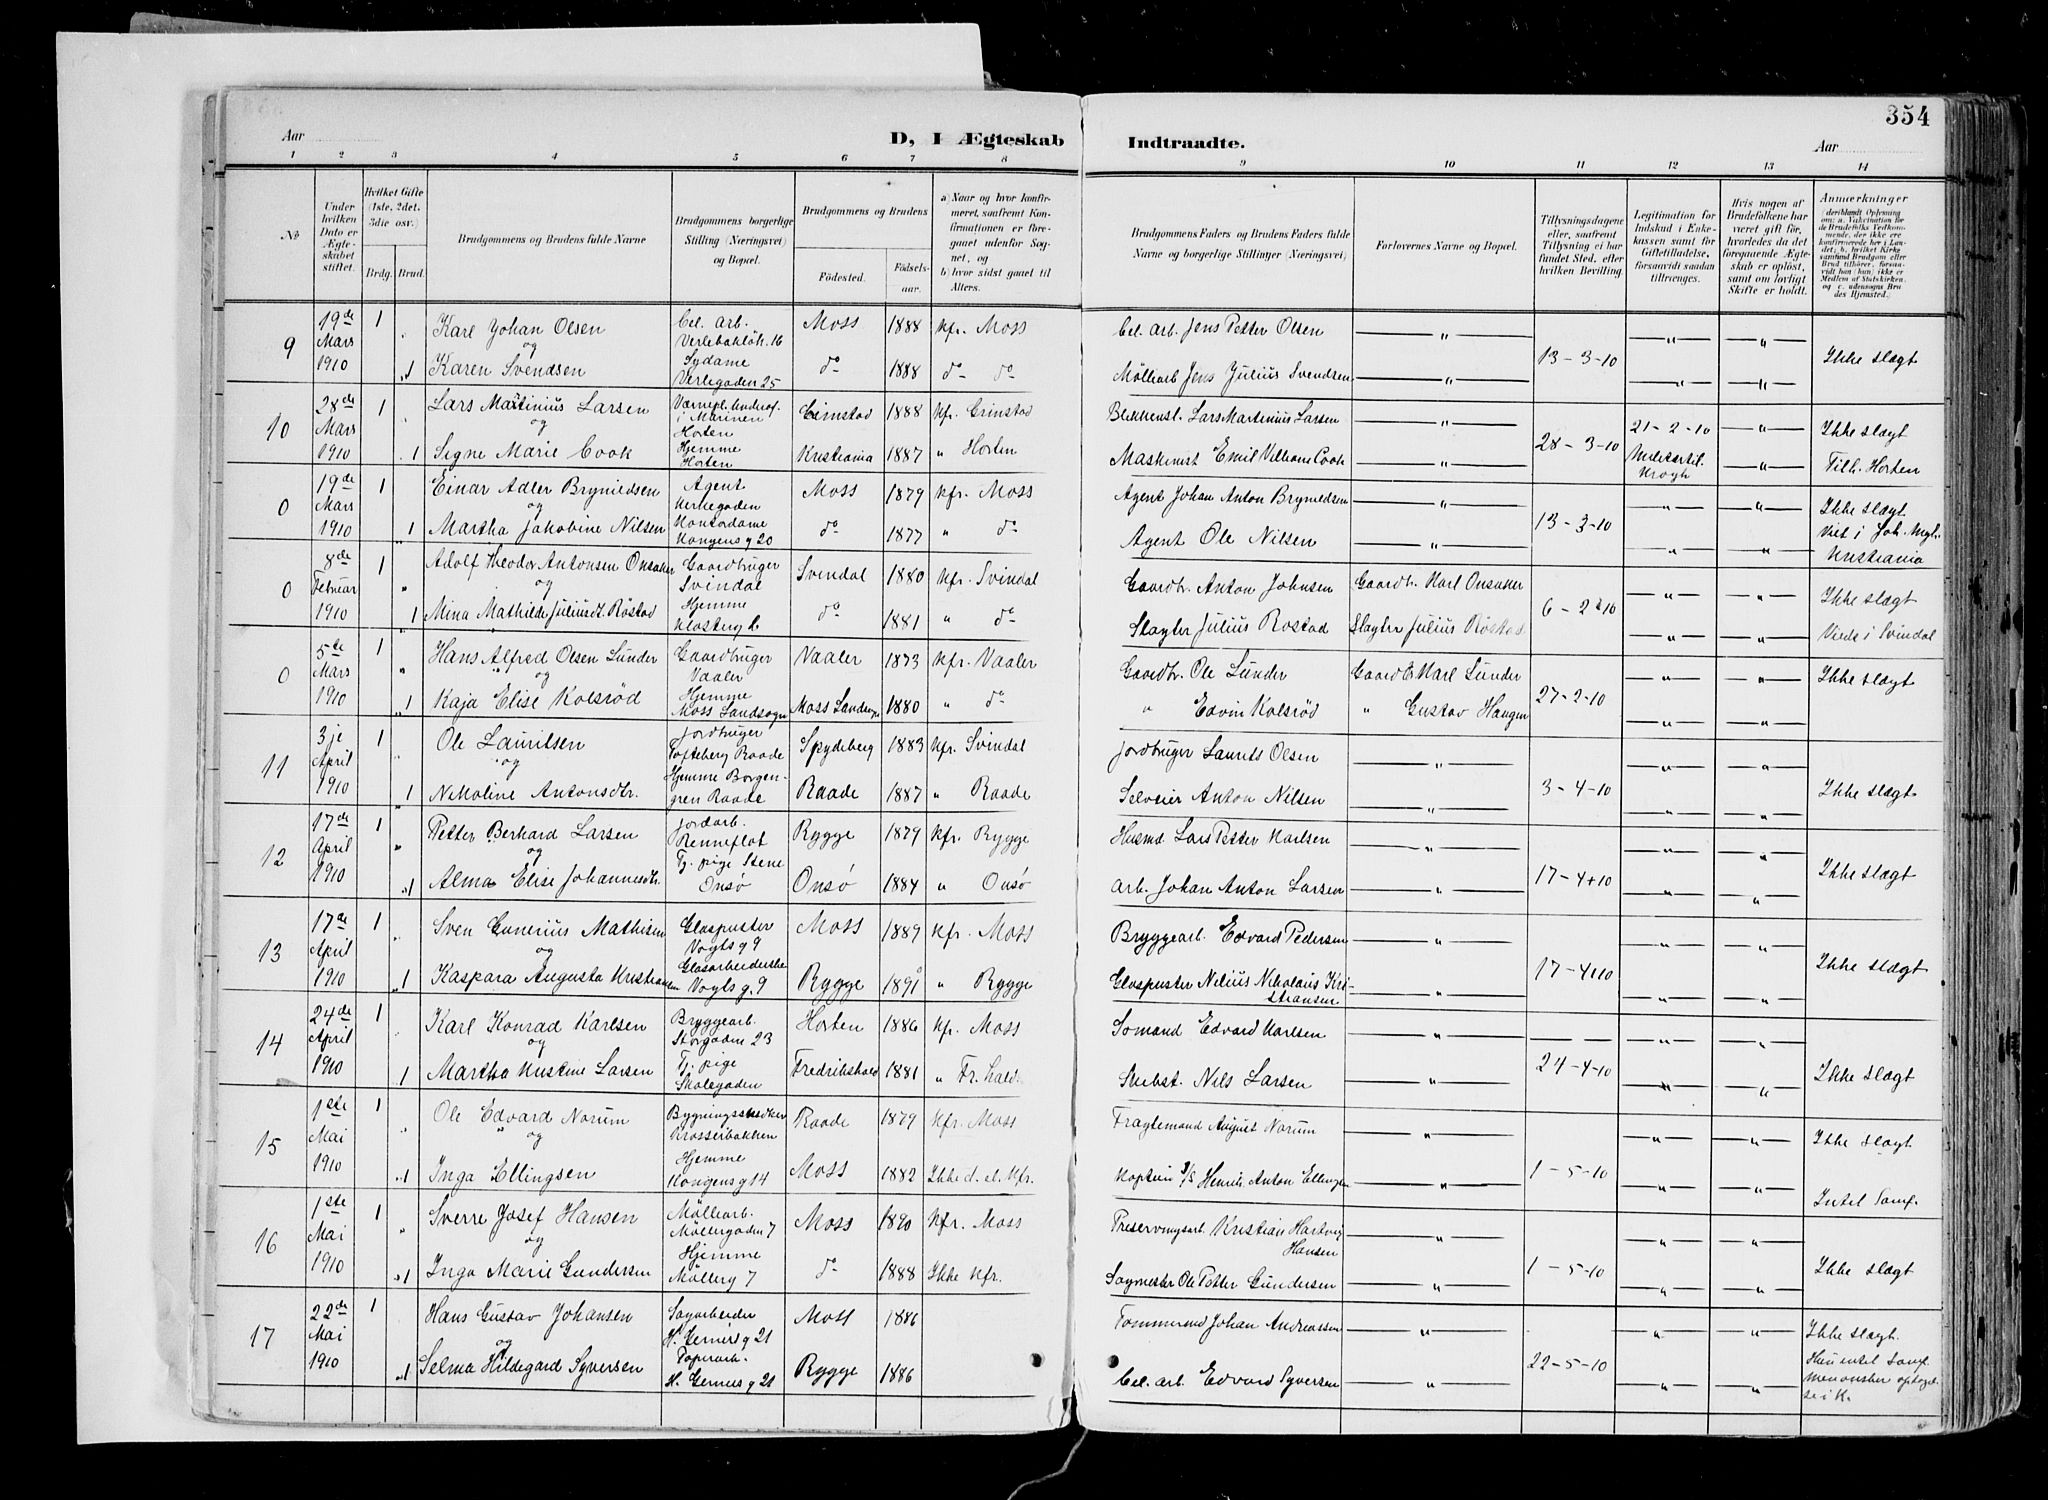 354
Aar
D, I Ægteskab
Indtraadte.
Aar
1 2 3 4 5 6 7 8 9 10 11 12 13 14
№
Under hvilken Dato er Ægteskabet stiftet.
Hvilket Gifte (1ste, 2det, 3die osv.)
Brdg. Brud.
Brudgommens og Brudens fulde Navne
Brudgommens borgerlige Stilling (Næringsvei) og Bopæl.
Brudgommens og Brudens
Fødested. Fødselsaar.
a) Naar og hvor konfirmeret, saafremt Konfirmationen er foregaaet udenfor Sognet, og
b) hvor sidst gaaet til Alters.
Brudgommens Faders og Brudens Faders fulde Navne og borgerlige Stillinger (Næringsvei)
Forlovernes Navne og Bopæl.
Tillysningsdagene eller, saafremt Tillysning ei har fundet Sted, efter hvilken Bevilling.
Legitimation for Indskud i Enkekassen samt for Giftetilladelse, forsaavidt saadan tiltrænges.
Hvis nogen af Brudefolkene har været gift før, hvorledes da det foregaaende Ægteskab er opløst, samt om lovligt Skifte er holdt.
Anmærkninger
9 19de Mars 1910 1 Karl Johan Olsen Cel. arb. Verlebakkøk. 16 Moss 1888 Kfr. Moss Cel. arb. Jens Petter Olsen — " — 13-3-10 — " — — " —
og
1 Karen Svendsen Sydame Verlegaden 25 do 1888 do do Møllearb Jens Julius Svendsen — " — — " — — " — Ikke slægt
10 28de Mars 1910 1 Lars Martinius Larsen Værnepl. Underof. i Marinen Horten Grimstad 1888 Kfr. Grimstad Blikkensl. Lars Martinius Larsen — " — 28-3-10 21-2-10 — " — Ikke slægt
og
1 Signe Marie Cook Hjemme Horten Kristiania 1887 " Horten Maskinist Emil Vilhelm Cook — " — Krogh — " — Tilh. Horten
0 19de Mars 1910 1 Einar Adler Brynildsen Agent Kirkegaden Moss 1879 Kfr. Moss Agent Johan Anton Brynildsen — " — 13-3-10 — " — — " — Ikke slægt
og
1 Martha Jakobine Nilsen Kontordame Kongens g 20 do 1877 " do Agent Ole Nilsen — " — — " — — " — Viet i Joh. Kristiania
0 8de Februar 1910 1 Adolf Theodor Antonsen Onsaker Gaardbruger Svindal Svindal 1880 Kfr. Svindal Gaardbr. Anton Johnsen Gaardbr. Karl Onsaker 6-2-10 — " — — " — Ikke slægt
og
1 Mina Mathilde Juliusdt. Røstad Hjemme Klosterg do 1881 " do Slagter Julius Rostad Slagter Julius Røstad — " — — " — Viede i Svindal
0 5te Mars 1910 1 Hans Alfred Olsen Sunder Gaardbruger Vaaler Vaaler 1873 Kfr. Vaaler Gaardbr. Ole Sunder Gaardb Karl Sunder 27-2-10 — " — — " — Ikke slægt
og
1 Kaja Elise Kolsrød Hjemme Moss Landsogn Moss Landsogn 1880 " do " Edvin Kolsrød " Gustav Haugen — " — — " —
11 3je April 1910 1 Ole Lauritsen Jordbruger Tofteberg Raade Spydeberg 1883 Kfr. Svindal Jordbruger Laurits Olsen — " — 3-4-10 — " — — " —
og
1 Nikoline Antonsdtr. Hjemme Borgengren Raade Raade 1887 " Raade Selveier Anton Nilsen — " — — " — — " — Ikke slægt
12 17de April 1910 1 Petter Berhard Larsen Jordarb. Renneflot Rygge 1879 Kfr. Rygge Husmd Lars Petter Karlsen — " — 17-4-10 — " — — " —
og
1 Alma Elise Johannesdtr. Tj. pige Stene Onsø Onsø 1884 " Onsø arb. Johan Anton Larsen — " — — " — — " — Ikke slægt
13 17de April 1910 1 Sven Gunerius Mathisen Glaspuster Vogts g 9 Moss 1889 Kfr. Moss Bryggearb. Edvard Pedersen — " — 17-4-10 — " — — " —
og
1 Kaspara Augusta Kristiansen Glasarbeiderske Vogts g. 9 Rygge 1891 " Rygge Glaspuster Nilius Nikolaius Kristiansen — " — — " — — " — Ikke slægt
14 24de April 1910 1 Karl Konrad Karlsen Bryggearb. Storgaden 23 Horten 1886 Kfr. Moss Sømand Edvard Karlsen — " — 24-4-10 — " — — " —
og
1 Martha Kristine Larsen Tj. pige Skolegaden Fredrikshald 1881 " Fr. hald. Skibst. Nils Larsen — " — — " — — " — Ikke slægt
15 1ste Mai 1910 1 Ole Edvard Norum Krosserbakken Raade 1879 Kfr. Moss Fragtemand August Norum — " — 1-5-10 — " — — " — Ikke slægt
og
1 Inga Ellingsen Hjemme Kongens g 14 Moss 1882 Ikke d. el. Kfr. Kaptein Henrik Anton Ellingsen — " — — " — — " — Intet Samf.
16 1ste Mai 1910 1 Sverre Josef Hansen Møllearb. Møllergaden 7 Moss 1890 Kfr. Moss Preservingsarb. Kristian Hartvig Hansen — " — 1-5-10 — " — — " —
og
1 Inga Marie Gundersen Hjemme Møllerg 7 do 1888 Ikke Kfr. Sagmester Ole Petter Gundersen — " — — " — — " — Ikke slægt
17 22de Mai 1910 1 Hans Gustav Johansen Sagarbeider H. Gerners g 21 Moss 1886 Tømmermd Johan Andreassen — " — 22-5-10 — " — — " — Ikke slægt.
og
1 Selma Hildegard Syversen Papirarb. H. Gerners g 21 Rygge 1886 Cel. arb. Edvard Syversen — " — — " — — " — Hun intet Samf. men ønsker optagelse i K.